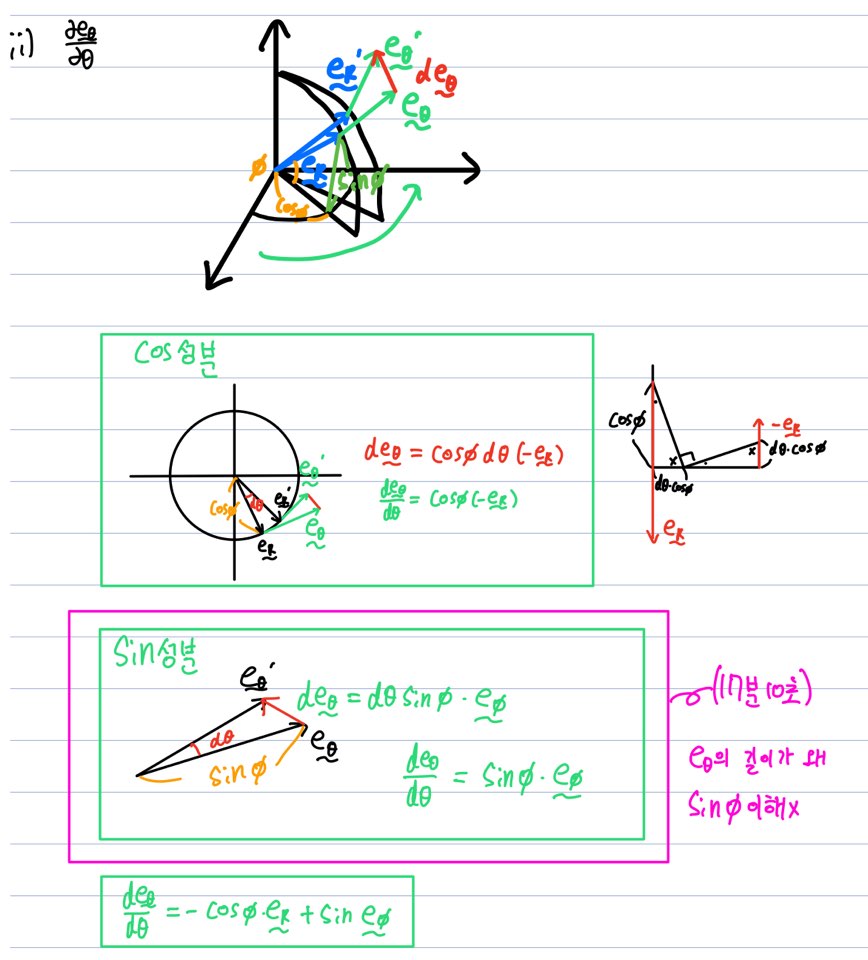 ii) ∂e_θ/∂θ
e_R' e_θ'
de_θ
e_θ
ϕ e_R sinϕ
cosϕ
Cos성분
de_θ = cosϕ dθ (-e_R)
de_θ/dθ = cosϕ(-e_R)
e_θ'
cosϕ dθ e_R'
e_θ
e_R
cosϕ -e_R
x x dθ·cosϕ
dθ·cosϕ
e_R
Sin성분
e_θ'
de_θ = dθ sinϕ · e_ϕ
dθ e_θ
sinϕ
de_θ/dθ = sinϕ · e_ϕ
(17분 10초)
e_θ의 길이가 왜
Sinϕ 이해x
de_θ/dθ = - cosϕ·e_R + sin e_ϕ